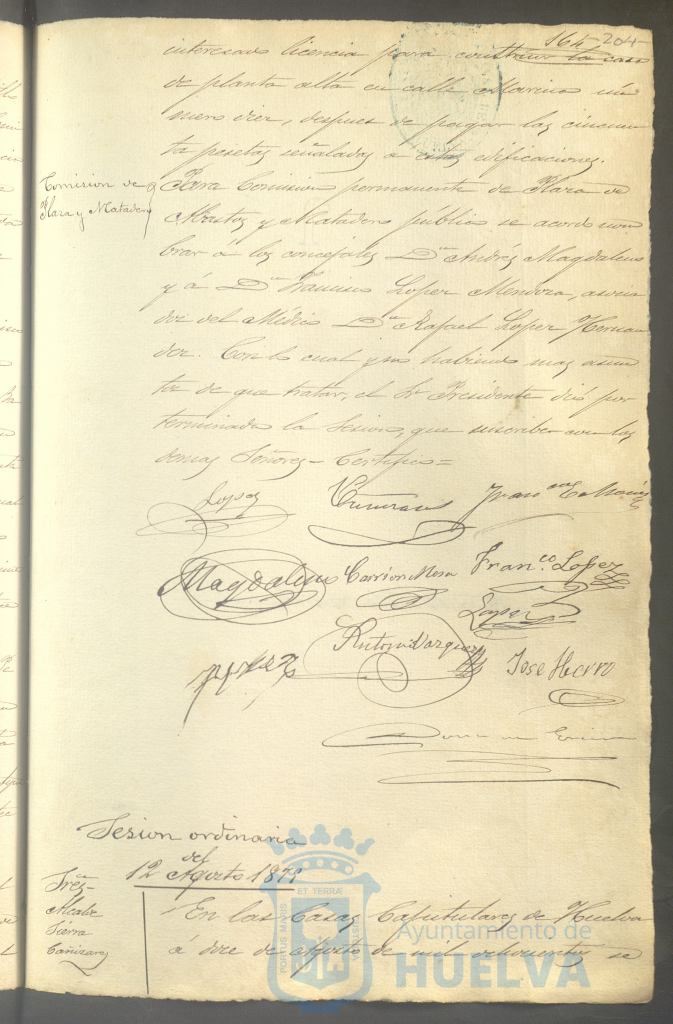 164 204
interesado licencia para construir la casa
de planta alta en calle Marina nú
mero diez, despues de pagar las cincuen
ta pesetas señaladas a estas edificaciones.
Comision de
Plaza y Matadero
Para Comision permanente de Plaza de
Abastos y Matadero público se acordó nom
brar á los concejales Dn Andrés Magdaleno
y á Dn Francisco Lopez Mendoza, asocia
dos del Médico Dn Rafael Lopez Hernan
dez. Con lo cual y no habiendo mas asun
tos de que tratar, el Sr Presidente dió por
terminada la Sesion, que suscribe con los
demas Señores - Certifico =
Lopez
Magdaleno Carrion Mora Franco. Lopez
Lopez
Antonio Vazquez
Jose Hierro
Sesion ordinaria
del
12 Agosto 1879
Sres.
Alcalde
Sierra
Cañizares
En las Casas Capitulares de Huelva
á doce de Agosto de mil ochocientos se
PORTUS MARIS ET TERRÆ CUSTODIA
Ayuntamiento de
HUELVA